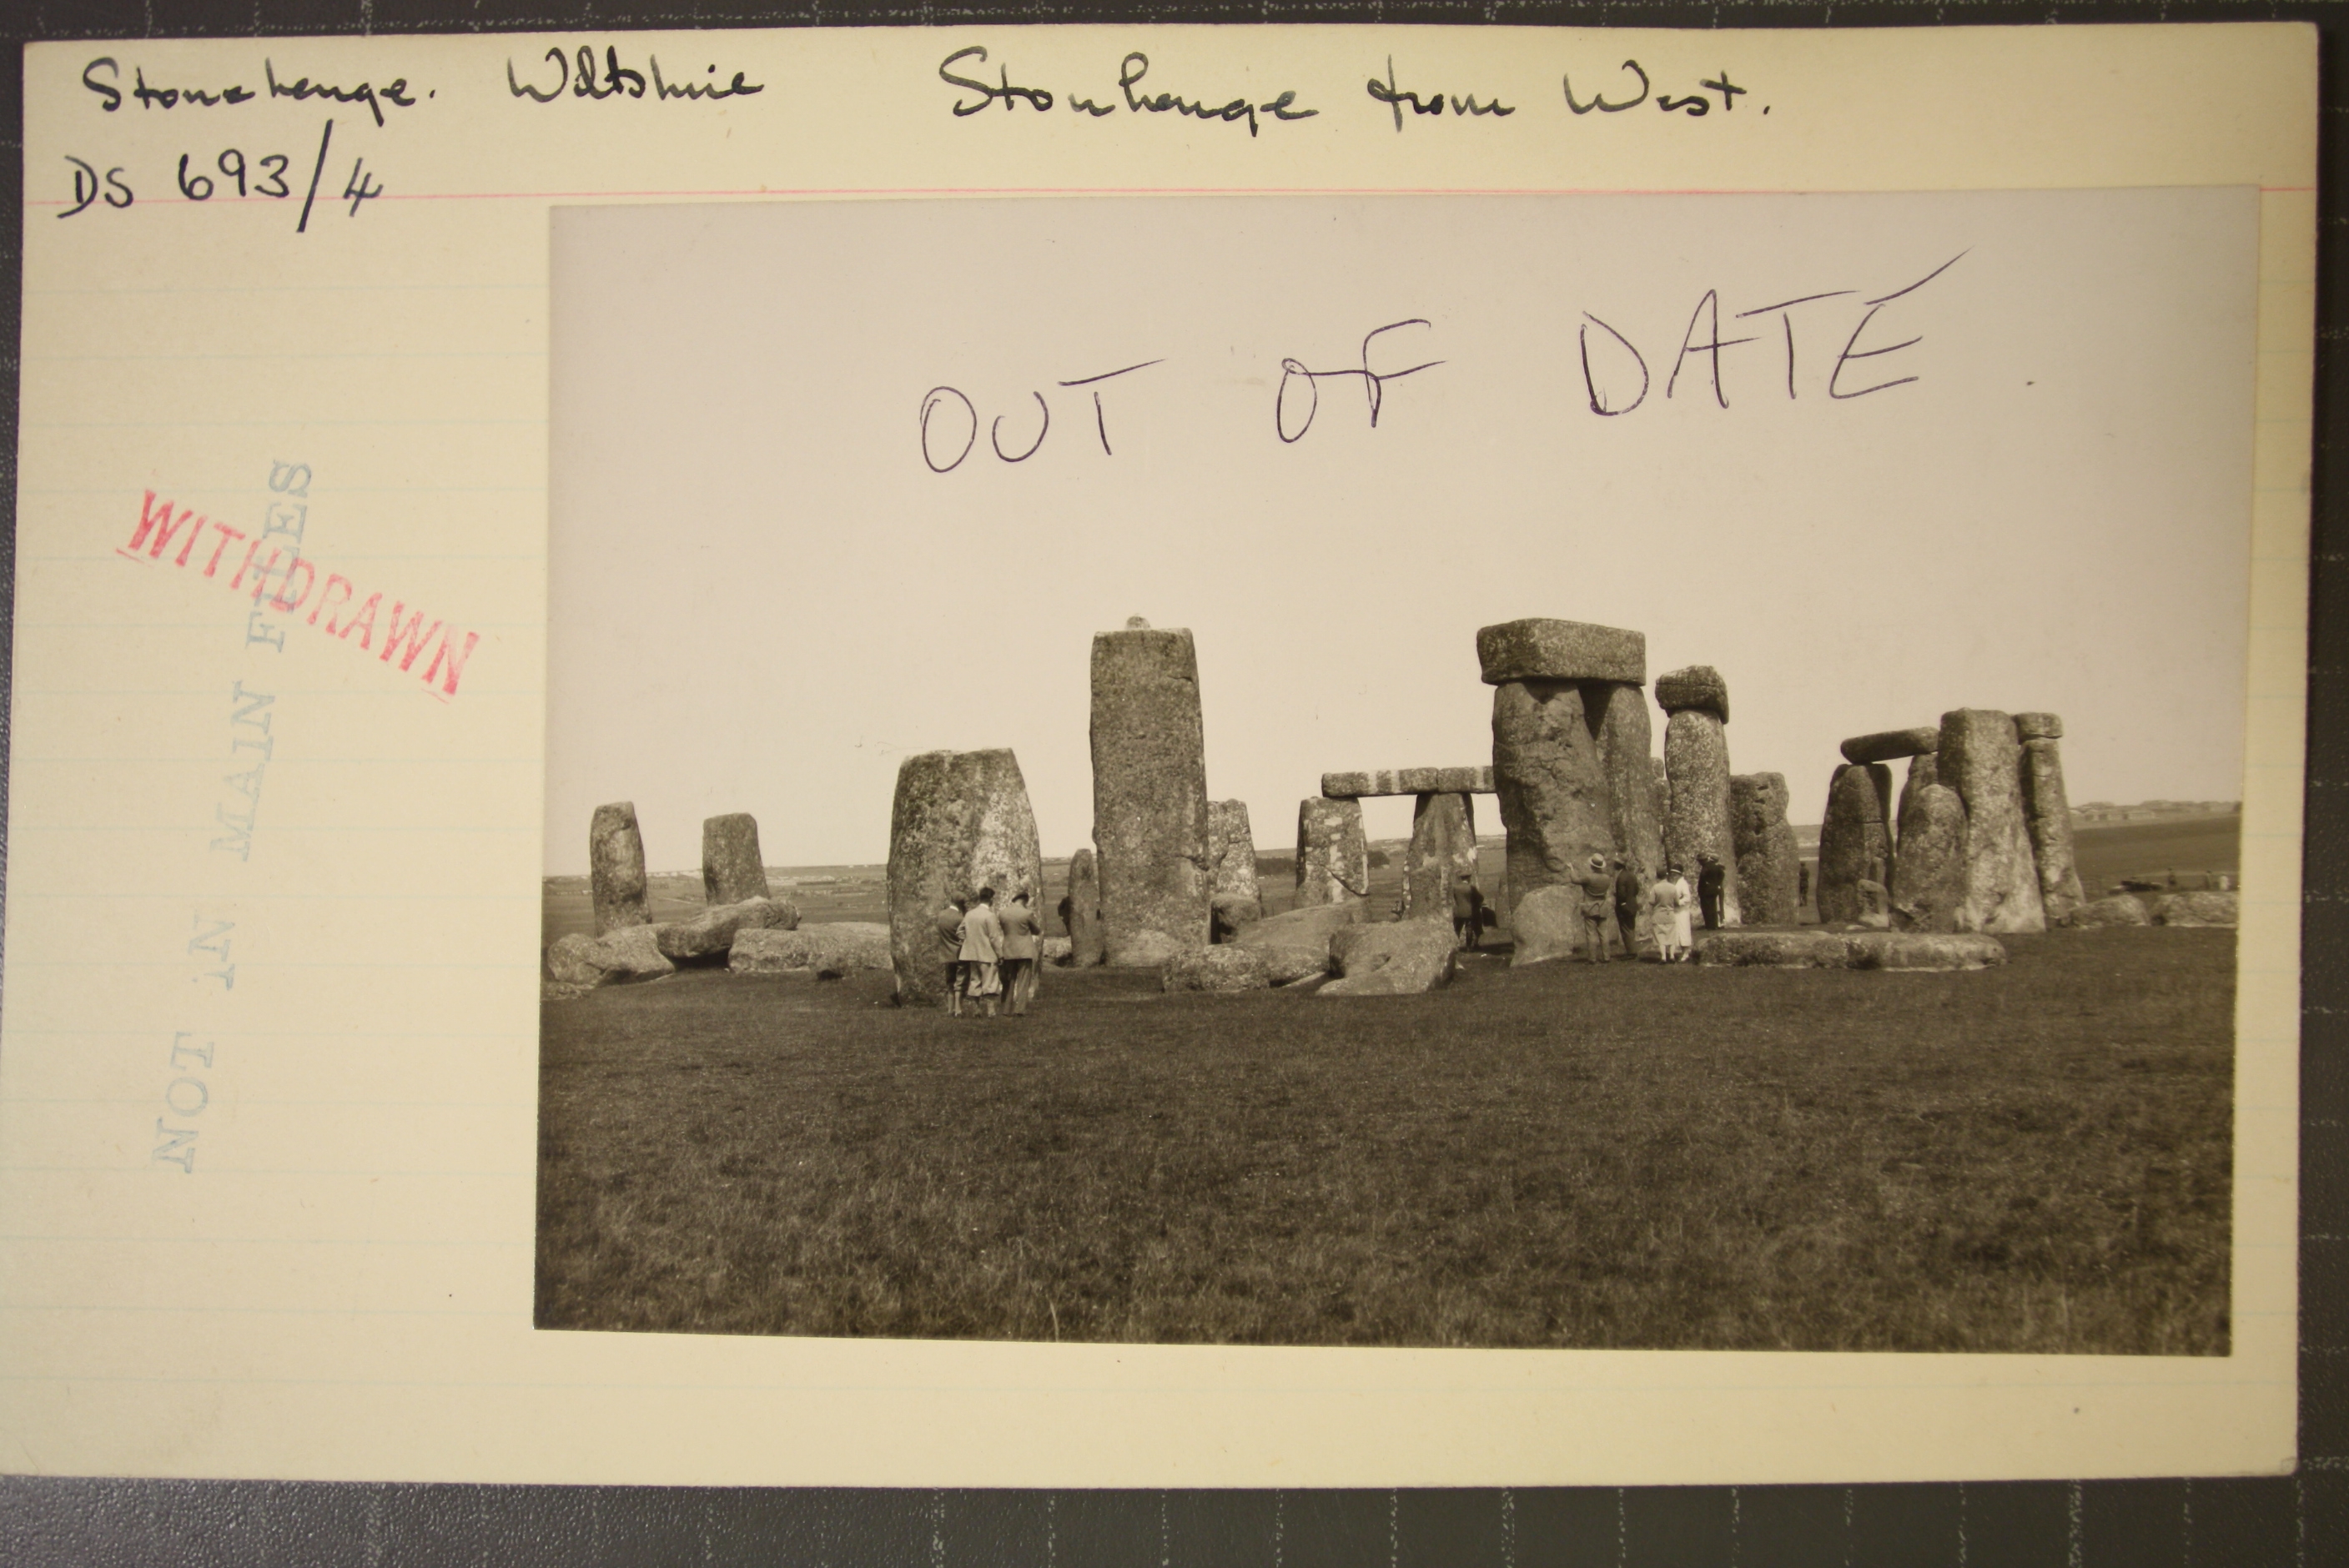 Stonehenge. Wiltshire
Stonhenge from West.
DS 693/4
OUT OF DATE.
WITHDRAWN
NOT IN MAIN FILES